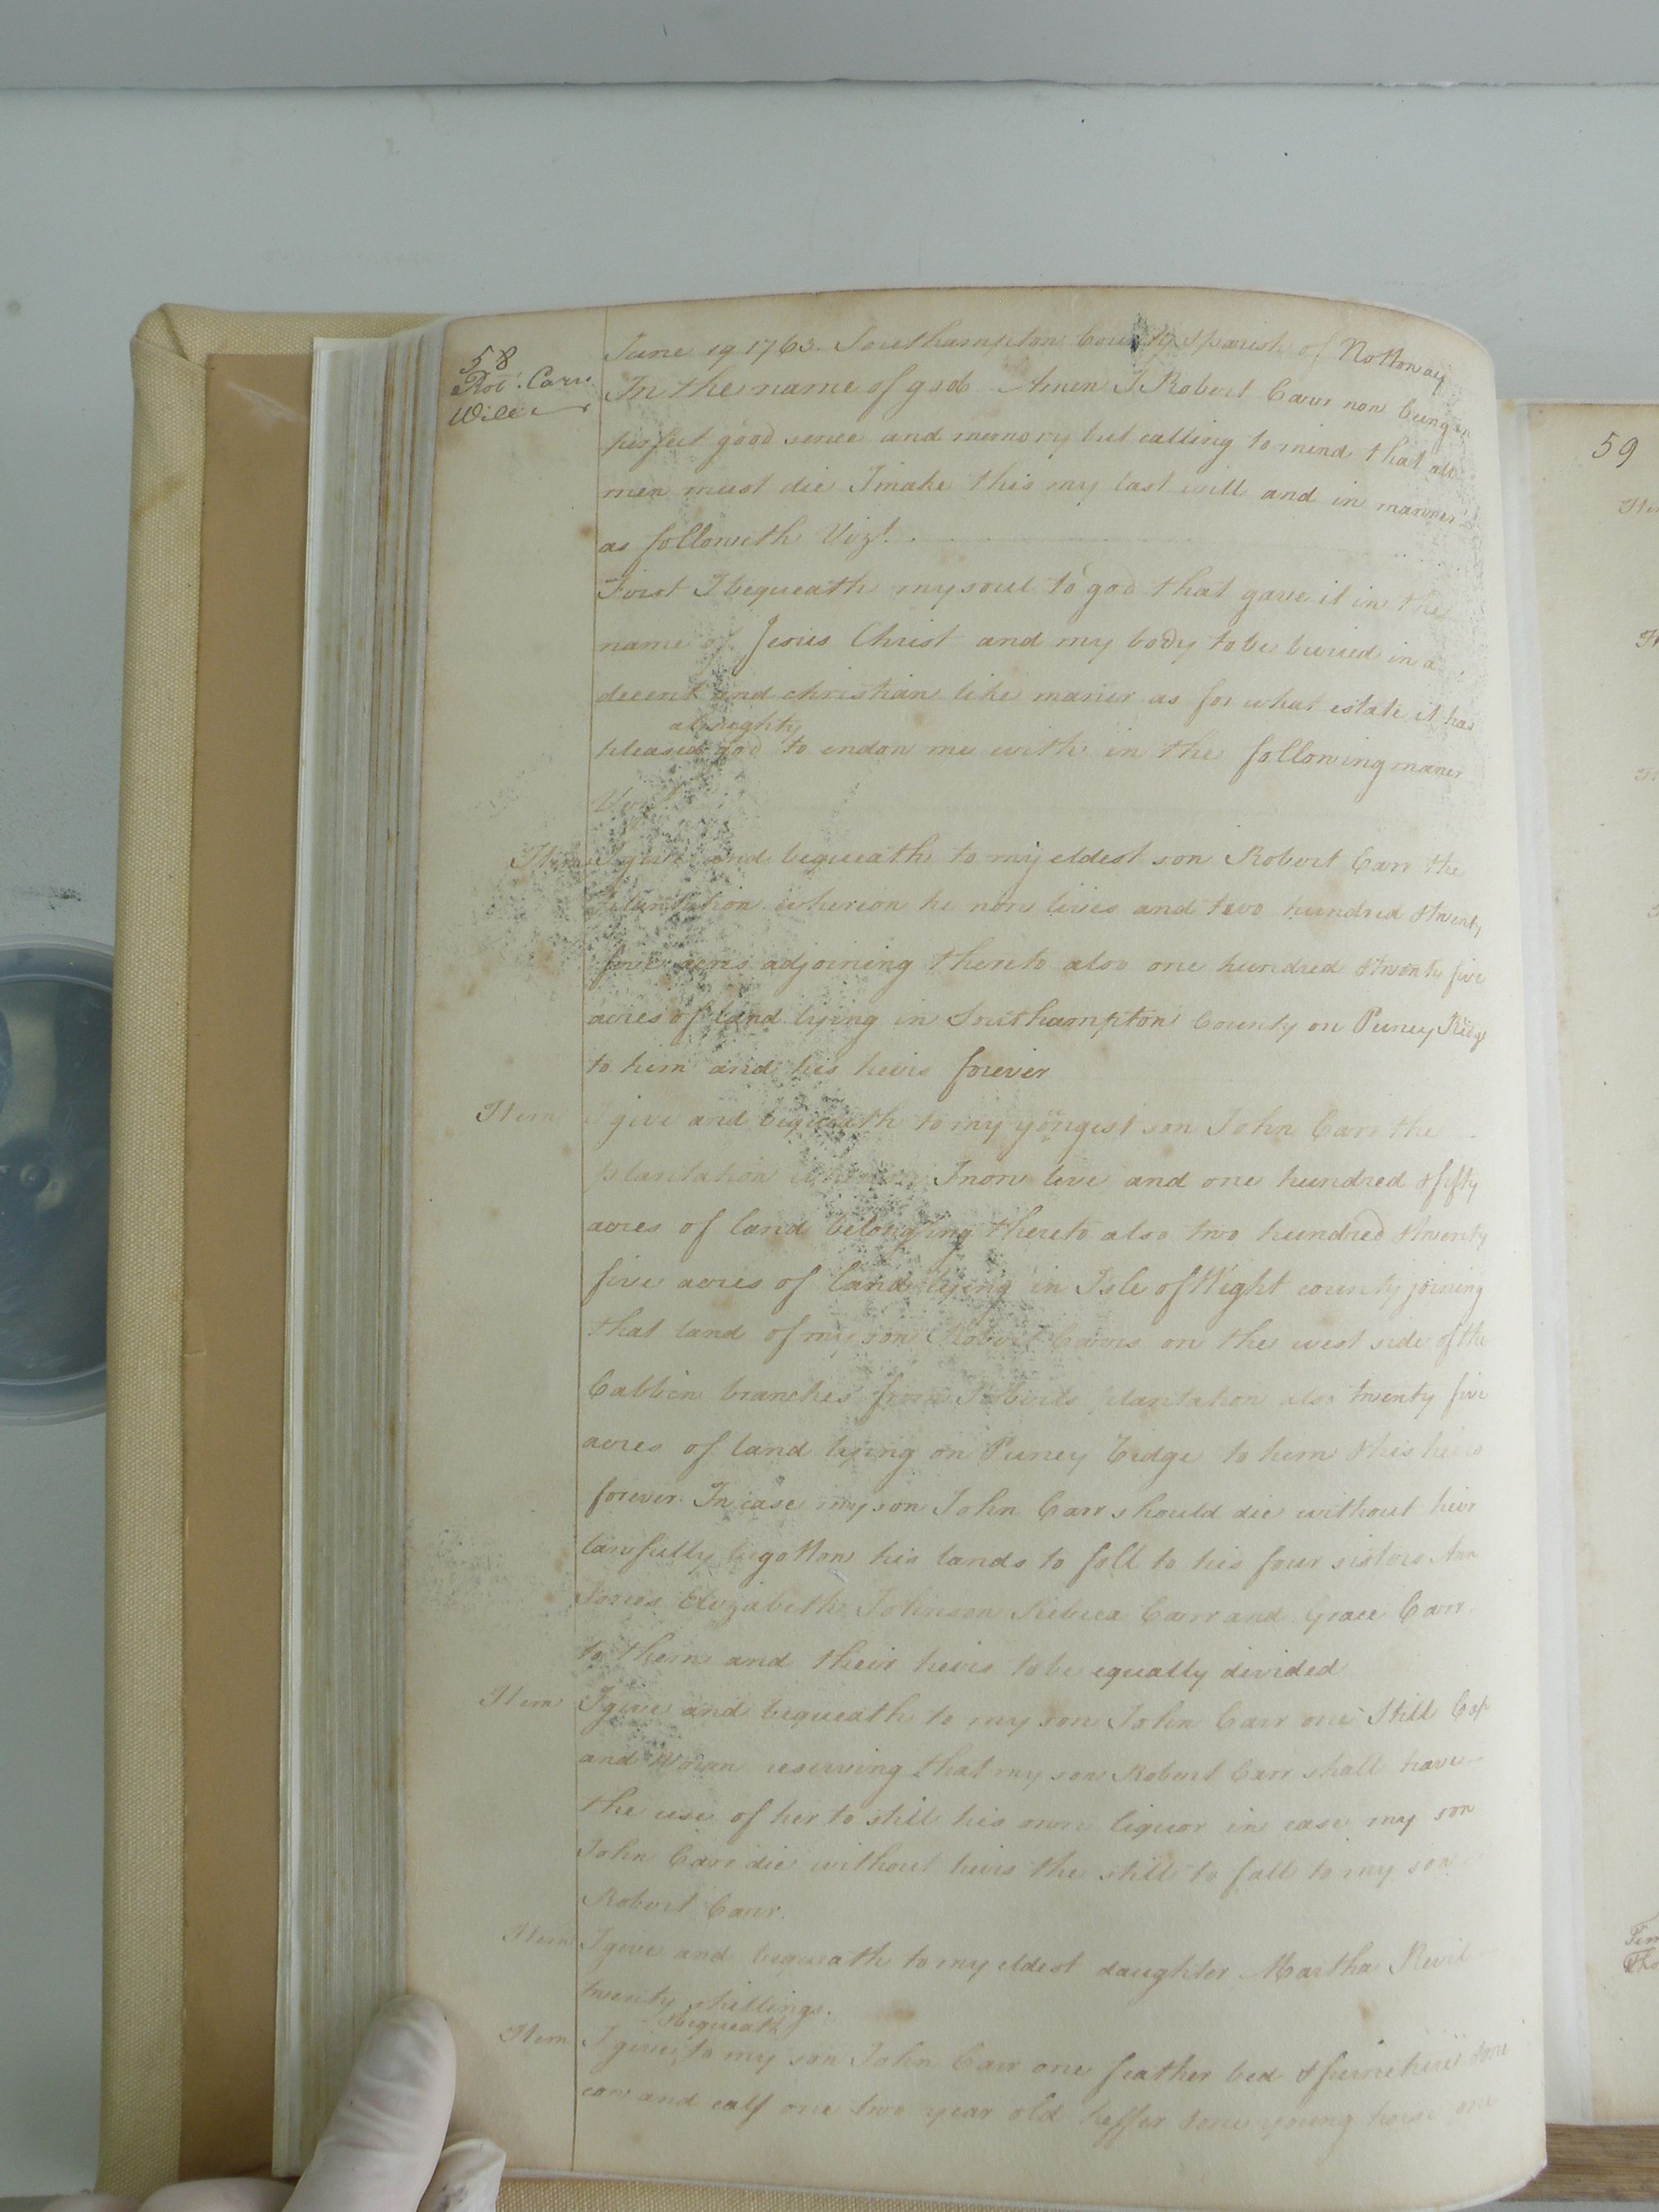 58
Rot: Carr
Will
June 19 1763. Southampton County & parish of Nottoway
In the name of god Amen I Robert Carr now being in
perfect good sence and memory but calling to mind that all
men must die I make this my last will and in manner
as followeth Vizt.
First I bequeath my soul to god that gave it in the
name of Jesus Christ and my body to be buried in a
decent and christian like maner as for what estate it has
almighty
pleased god to endow me with in the following maner
Vizt.
Item I give and bequeath to my eldest son Robert Carr the
plantation whereon he now lives and two hundred & twenty
five acres adjoining thereto also one hundred & twenty five
acres of land lying in Southampton County on Puney Ridge
to him and his heirs forever
Item I give and bequeath to my yongest son John Carr the
plantation I now live and one hundred & fifty
acres of land belonging thereto also two hundred & twenty
five acres of land lying in Isle of Wight county joining
that land of my son Robert Carrs on the west side of the
Cabbin branches from Roberts plantation also twenty five
acres of land lying on Puney Ridge to him & his heirs
forever. In case my son John Carr should die without heir
lawfully begotton his lands to fall to his four sisters Ann
Jones Elizabeth Johnson Rebeca Carr and Grace Carr
to them and their heirs to be equally divided
Item I give and bequeath to my son John Carr one Still Cap
and Worm reserving that my son Robert Carr shall have
the use of her to still his own liquor in case my son
John Carr die without heirs the still to fall to my son
Robert Carr.
Item I give and bequeath to my eldest daughter Martha Revil
twenty shillings.
& bequeath
Item I give to my son John Carr one feather bed & furneture & one
cow and calf one two year old heffer & one young horse one
59